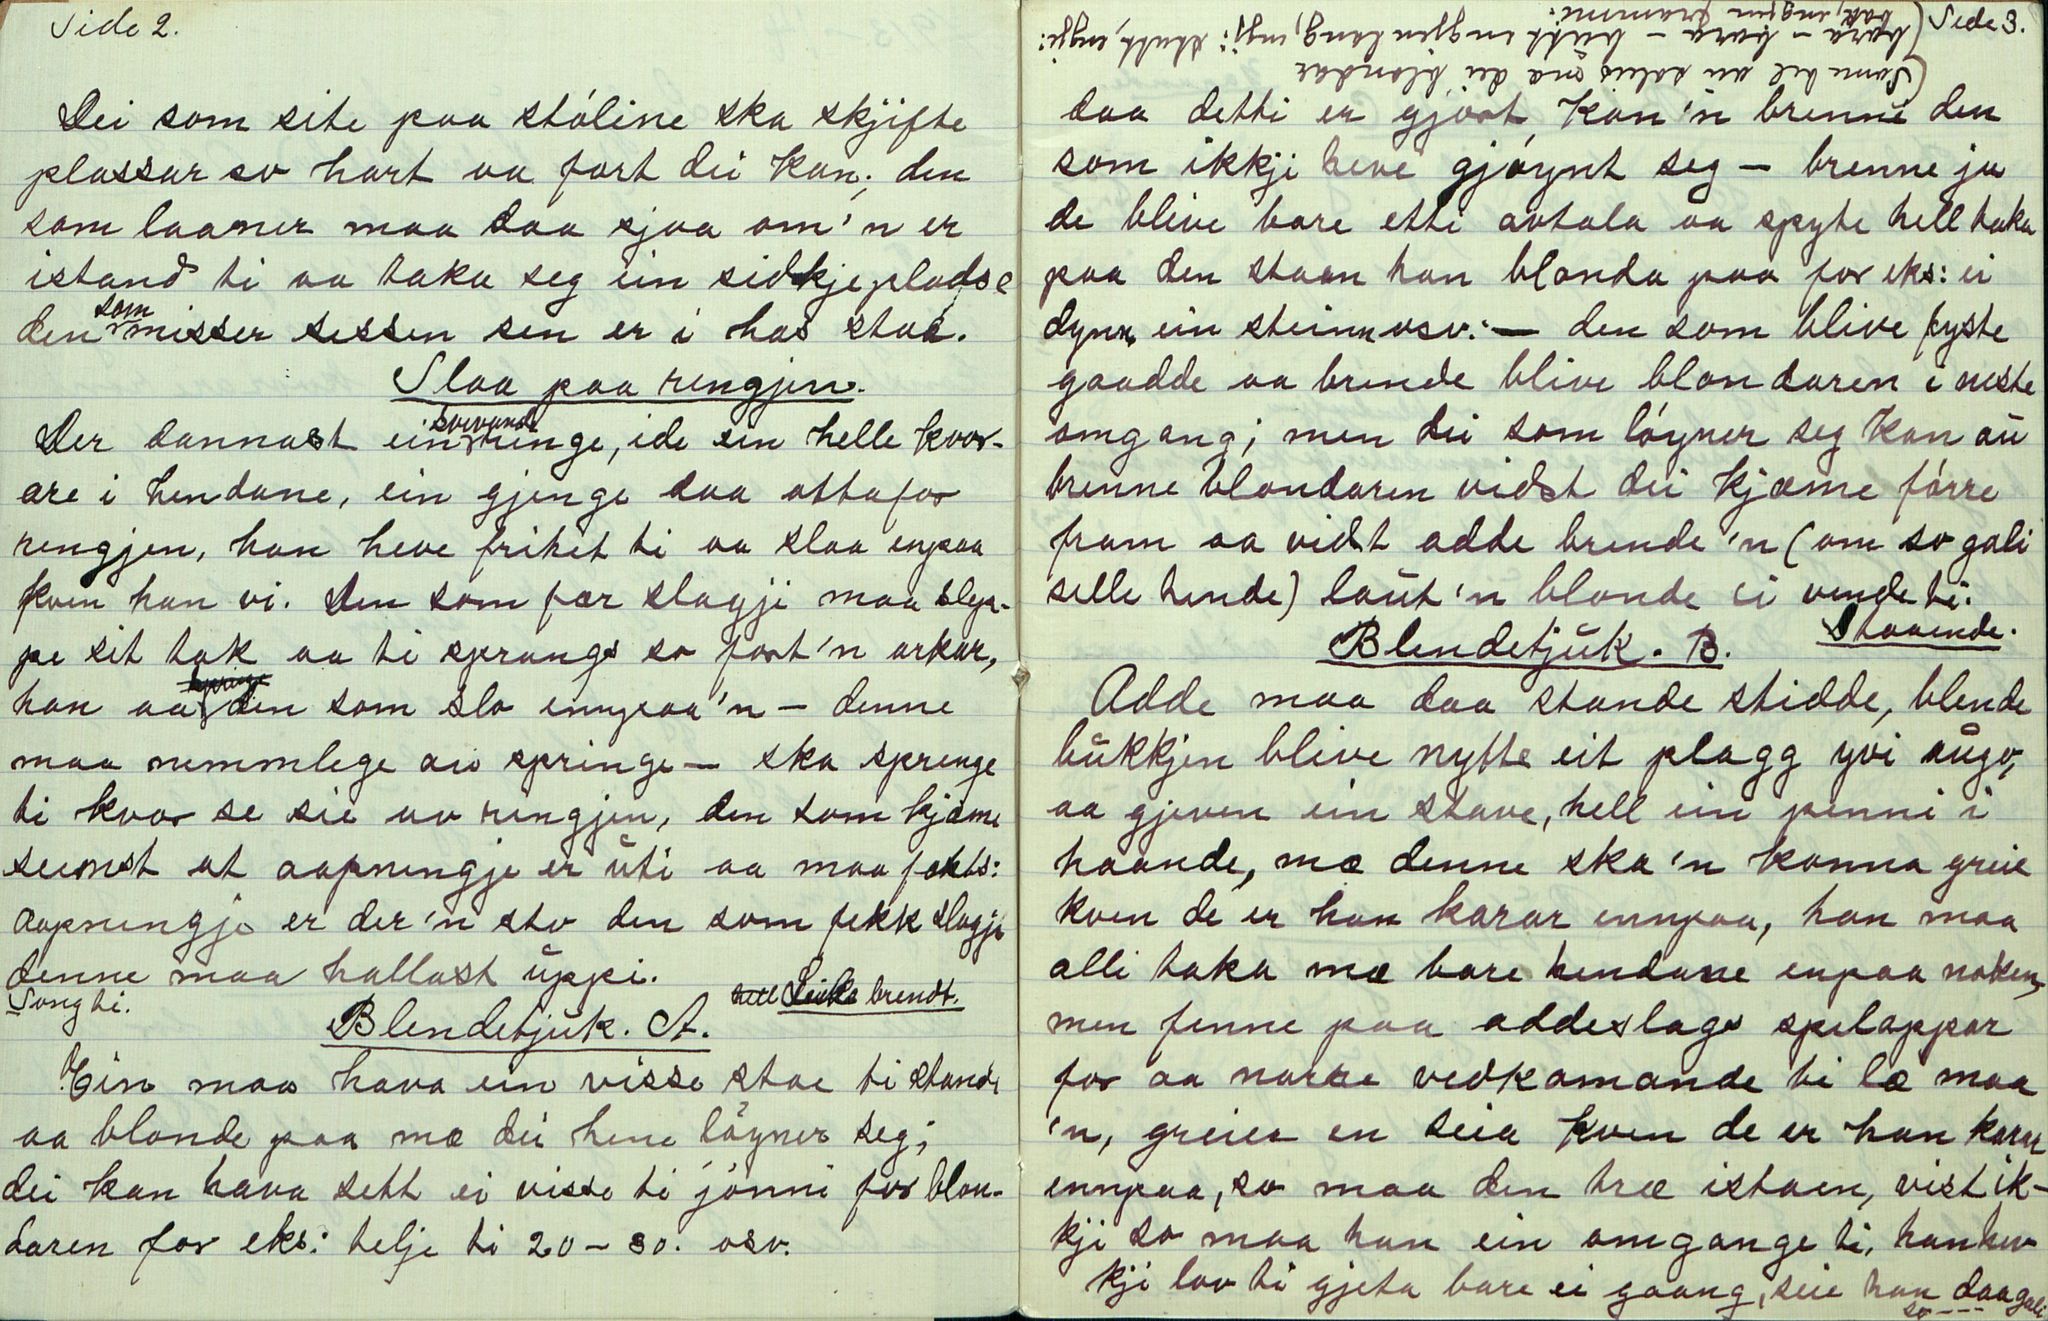 Side 2.
Dei som site paa stóline ska skjifte
plassar so hart aa fort dei kan; den
som laaner maa daa sjaa om'n er
istand ti aa taka seg ein sidkjepladse
den som misser sessen sen er i has stae.
Slaa paa rengjen.
Der dannast ein svivande renge, ide ein helle kvor-
are i hendane, ein gjenge daa attafor
rengjen, han heve frihet ti aa slaa enpaa
kven han vi. Den som fær slagji maa slep-
pe sit tak aa ti sprangs so fort'n orkar,
han aa den som slo ennpaa'n — denne
maa nemmlege au springe — ska sprenge
ti kvor se sie av rengjen, den som kjæme
seinst at aapningje er ūti aa maa fakts:
aapningje er der'n sto den som fekk slagje
denne maa hallast ūppi.
Song ti.
Blendetjūk. A. Leike brendt.
Ein maa hava ein visse stae ti stande
aa blonde paa mæ dei hine lóyner seg;
dei kan hava sett ei visse ti jónni for blon-
daren for eks: telje ti 20–30. osv.
Side 3.
(Somu tel au soleis mæ dei blondar
bara – bara – būtt ingjen lang, ingji stutt, ingji
bak, ingjen framme:
daa detti er gjort, kan'n brenne den
som ikkji heve gjóynt seg — brenne ja
de blive bare etti avtala aa spyte hell taka
paa den staen han blonda paa for eks: ei
dynn, ein steinn osv: — den som blive fyste
gaadde aa brende blive blondaren i neste
omgang; men dei som lóyner seg kan au
brenne blondaren vidst dei kjæme fórre
fram aa vidt adde brende'n (om so gali
selle hende) laūt'n blonde ei vende ti.
Blendetjūk. B. Staaende.
Adde maa daa stande stidde, blende
būkkjen blive nytte eit plagg yvi aūgo,
aa gjeven ein stave, hell ein penni i
haande, mæ denne ska'n kunna greie
kven de er han karar ennpaa, han maa
alli taka mæ bare hendane enpaa noken,
men fenne paa addeslags spelappar
for aa narre vedkomande ti læ maa
'n, greier en seia kven de er han karar
ennpaa, so maa den træ istaen, vist ik-
kji so maa han ein omgange ti, han hev
kji lov ti gjeta bare ei gaang, seie han daa gali
so ---